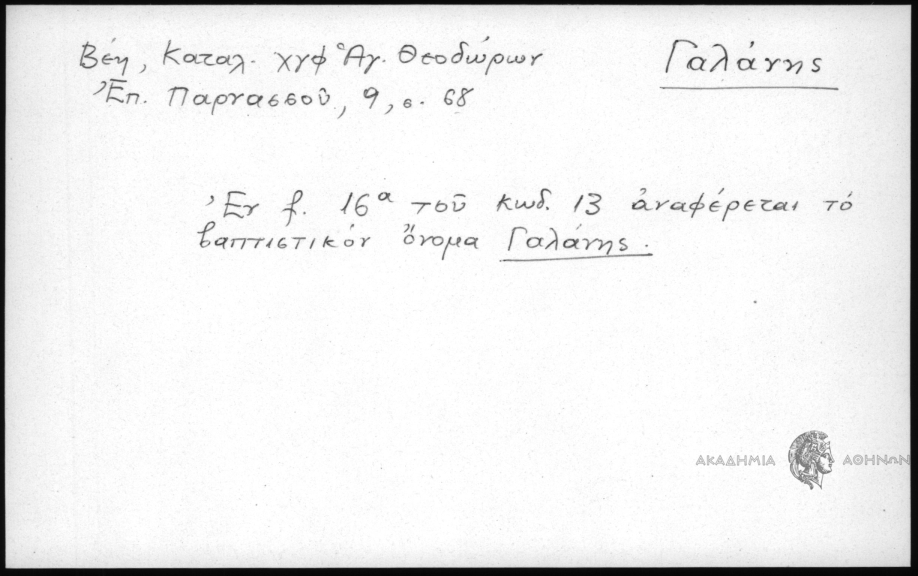 Βέη, Καταλ. χγφ Ἁγ. Θεοδώρων
Γαλάνης
Ἐπ. Παρνασσοῦ, 9, σ. 68
Ἐν f. 16α τοῦ κωδ. 13 ἀναφέρεται τό
βαπτιστικόν ὄνομα Γαλάνης.
ΑΚΑΔΗΜΙΑ ΑΘΗΝΩΝ